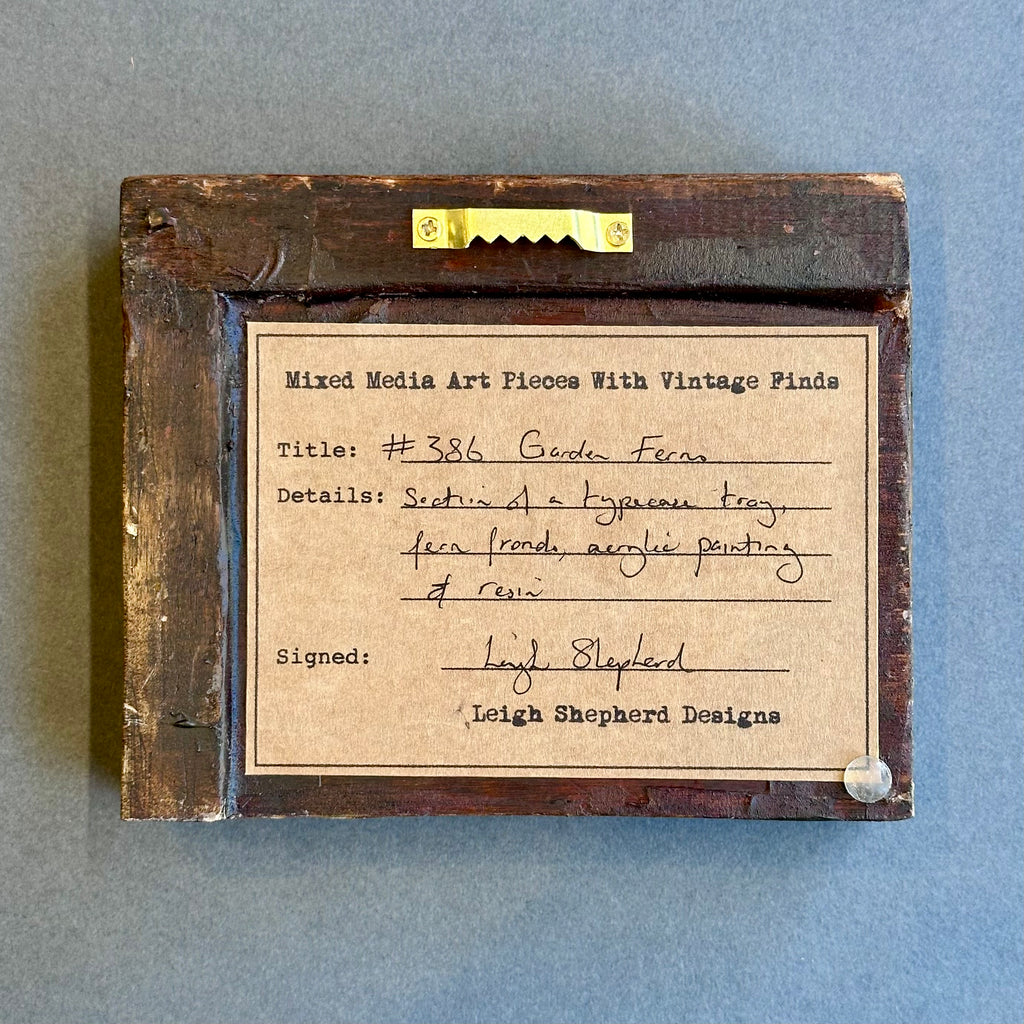 Mixed Media Art Pieces With Vintage Finds
Title: #386 Garden Ferns
Details: Section of a typecase tray,
fern fronds, acrylic painting
& resin
Signed: Leigh Shepherd
Leigh Shepherd Designs